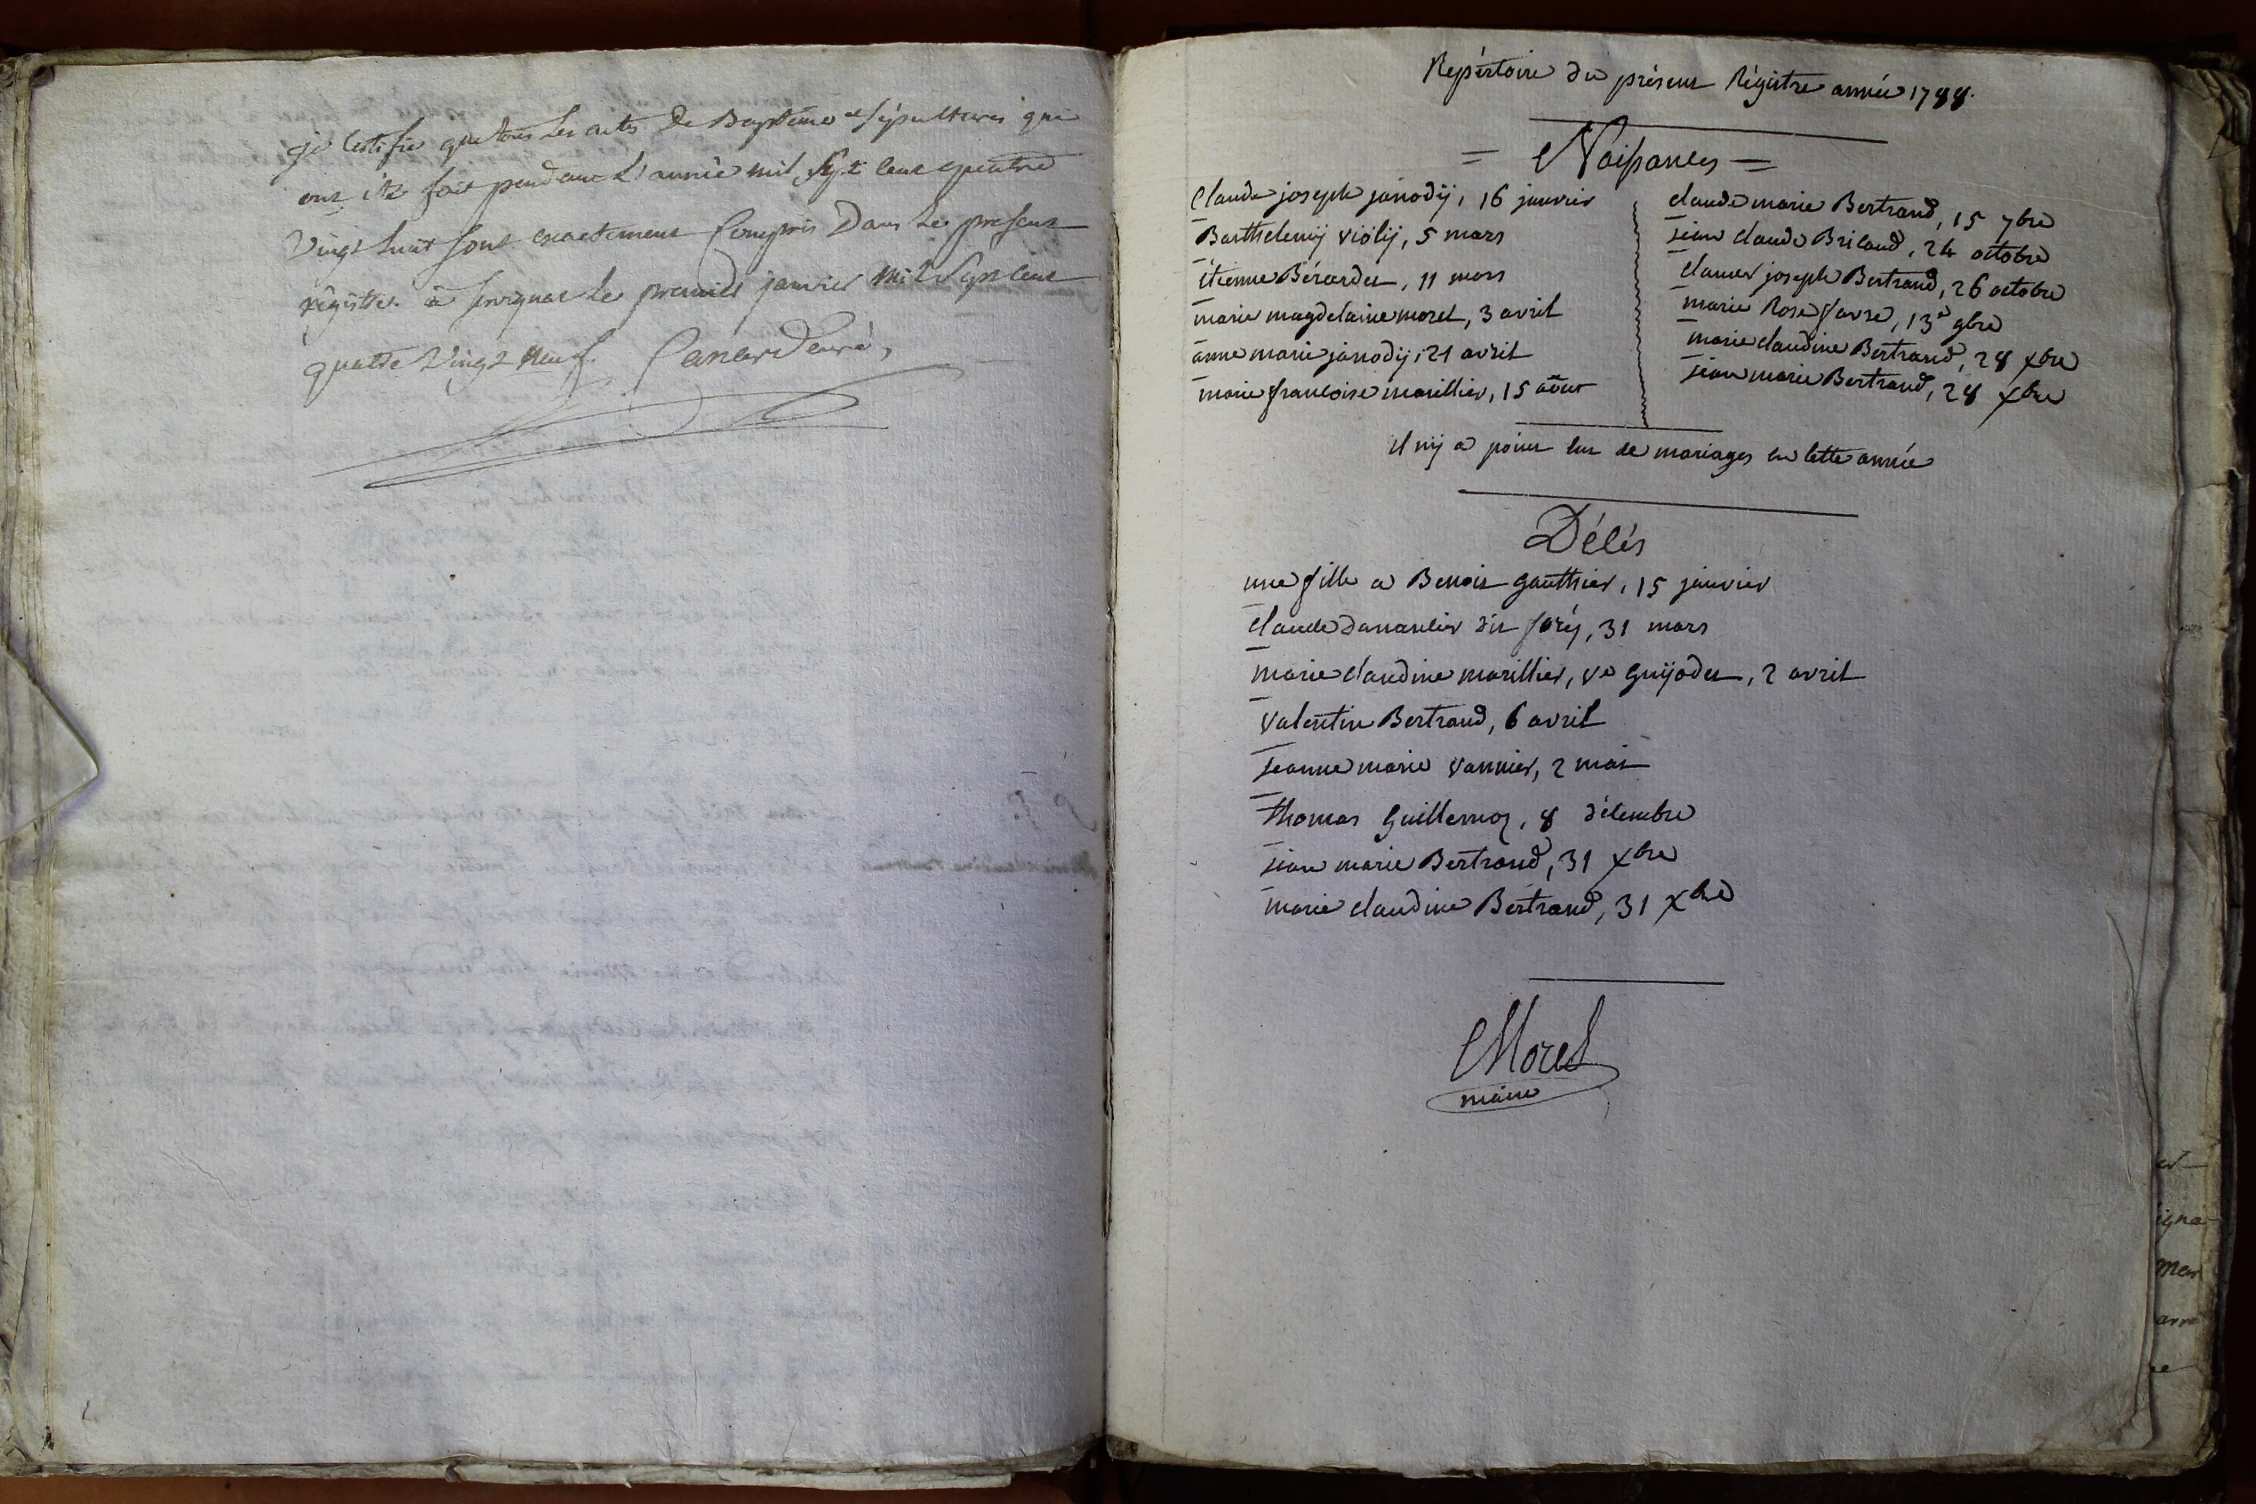 je certifie que tous les actes de Baptême et sépultures qui
ont été fait pendant l'année mil sept cent quatre
vingt huit sont exactement compris dans le present
régistre. à le premier janvier mil sept cent
quatre vingt neuf. Canard curé,
Repértoire du présent Régistre année 1788.
= Naissances =
Claude joseph janodÿ, 16 janvier
Barthelemÿ Violÿ, 5 mars
étienne Bérardet, 11 mars
marie magdelaine morel, 3 avril
anne marie janodÿ, 21 avril
marie françoise marillier, 15 août
claude marie Bertrand, 15 7bre
jean claude Bricaud, 24 octobre
joseph Bertrand, 26 octobre
marie Rose favre, 13e 9bre
marie claudine Bertrand, 28 xbre
jean marie Bertrand, 28 xbre
il nÿ a point eu de mariages en cette année
Décés
une fille a Benoit gauthier, 15 janvier
claude danancier dit joréy, 31 mars
marie claudine marillier, ve guÿodet, 2 avril
Valentin Bertrand, 6 avril
jeanne marie Vannier, 2 mai
thomas guillemoz, 8 décembre
jean marie Bertrand, 31 xbre
marie claudine Bertrand, 31 xbre
Morel
maire